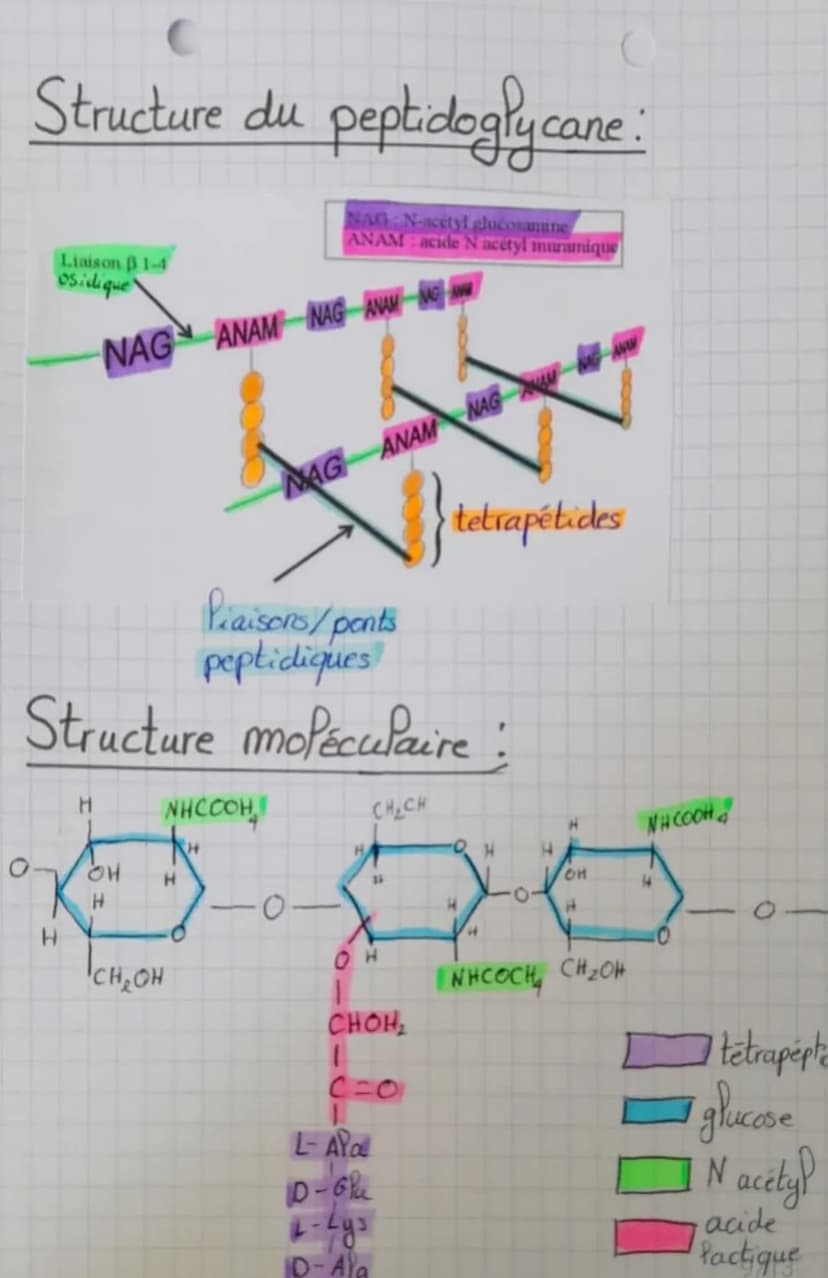 Structure du peptidoglycane :
NAG : N-acétyl glucosamine
ANAM : acide N acétyl muramique
Liaison β 1-4
osidique
NAG ANAM NAG ANAM NAG ANAM
NAG ANAM NAG ANAM NAG ANAM
tetrapétides
liaisons/ponts
peptidiques
Structure moléculaire :
H NHCCOH4 CH2CH H NHCOOH4
H H O H H
O OH H H OH H
H O O H H O
H O H H O
CH2OH O H NHCOCH4 CH2OH
CHOH2
C=O
L-Ala
D-Glu
L-Lys
D-Ala
tétrapépti
glucose
N acétyl
acide
lactique